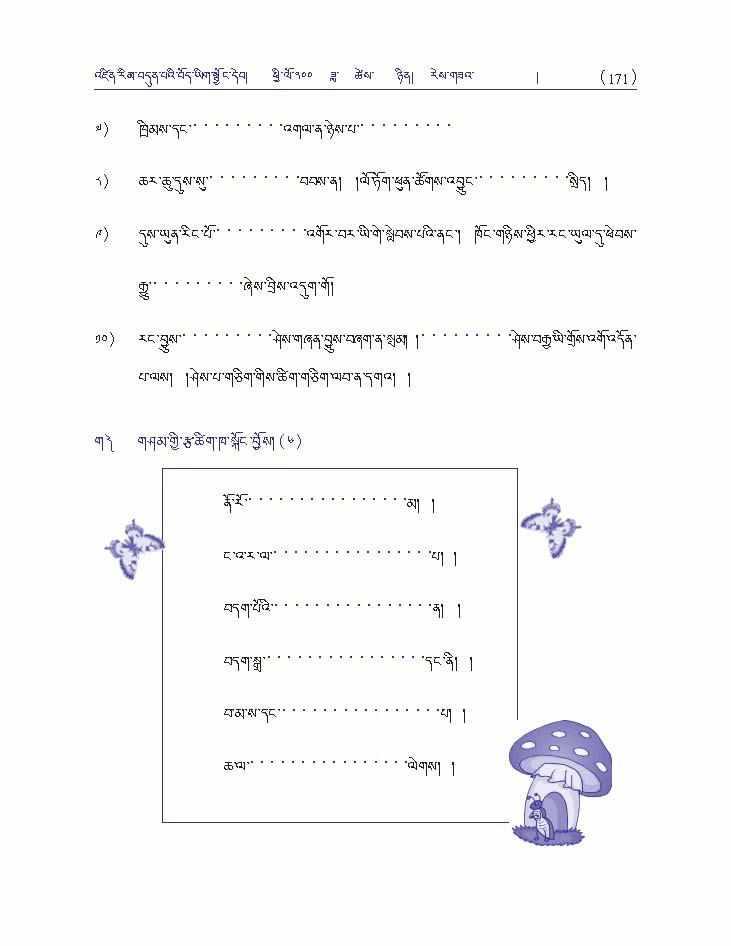 འཛིན་རིམ་བདུན་པའི་བོད་ཡིག་སྦྱོང་དེབ། ཕྱི་ལོ་༢༠༠ ཟླ་ ཚེས་ ཉིན། རེས་གཟའ་ | (171)
༧) ཁྲིམས་དང་་་་་་་་་་་འགལ་ན་ཉེས་པ་་་་་་་་་་་
༨) ཆར་ཆུ་དུས་སུ་་་་་་་་་་་བབས་ན། །ལོ་ཏོག་ཕུན་ཚོགས་འབྱུང་་་་་་་་་་་སྲིད། །
༩) དུས་ཡུན་རིང་པོ་་་་་་་་་་་འགོར་བར་ཡི་གེ་སླེབས་པའི་ནང་། ཁོང་གཉིས་ཕྱིར་རང་ཡུལ་དུ་ཕེབས་
རྒྱུ་་་་་་་་་་་ཞེས་བྲིས་འདུག་གོ།
༡༠) རང་བྱུས་་་་་་་་་་་ཤེས་གཞན་བྱུས་བཞག་ན་སྲམ། །་་་་་་་་་་ཤེས་བརྒྱ་ཡི་གྲོས་འགོ་འདོན་
པ་ལས། །ཤེས་པ་གཅིག་གིས་ཚིག་གཅིག་ལབ་ན་དགའ། །
ག༽ གཤམ་གྱི་རྩ་ཚིག་ཁ་སྐོང་བྱོས། (༦)
ནོ་རོ་་་་་་་་་་་་་་་་་་མ། །
ང་འ་ར་ལ་་་་་་་་་་་་་་་་་་པ། །
བདག་པོའི་་་་་་་་་་་་་་་་་་ན། །
བདག་སྒྲ་་་་་་་་་་་་་་་་་་དང་ནི། །
བ་མ་ས་དང་་་་་་་་་་་་་་་་་་པ། །
ཆ་ལ་་་་་་་་་་་་་་་་་་ལེགས། །